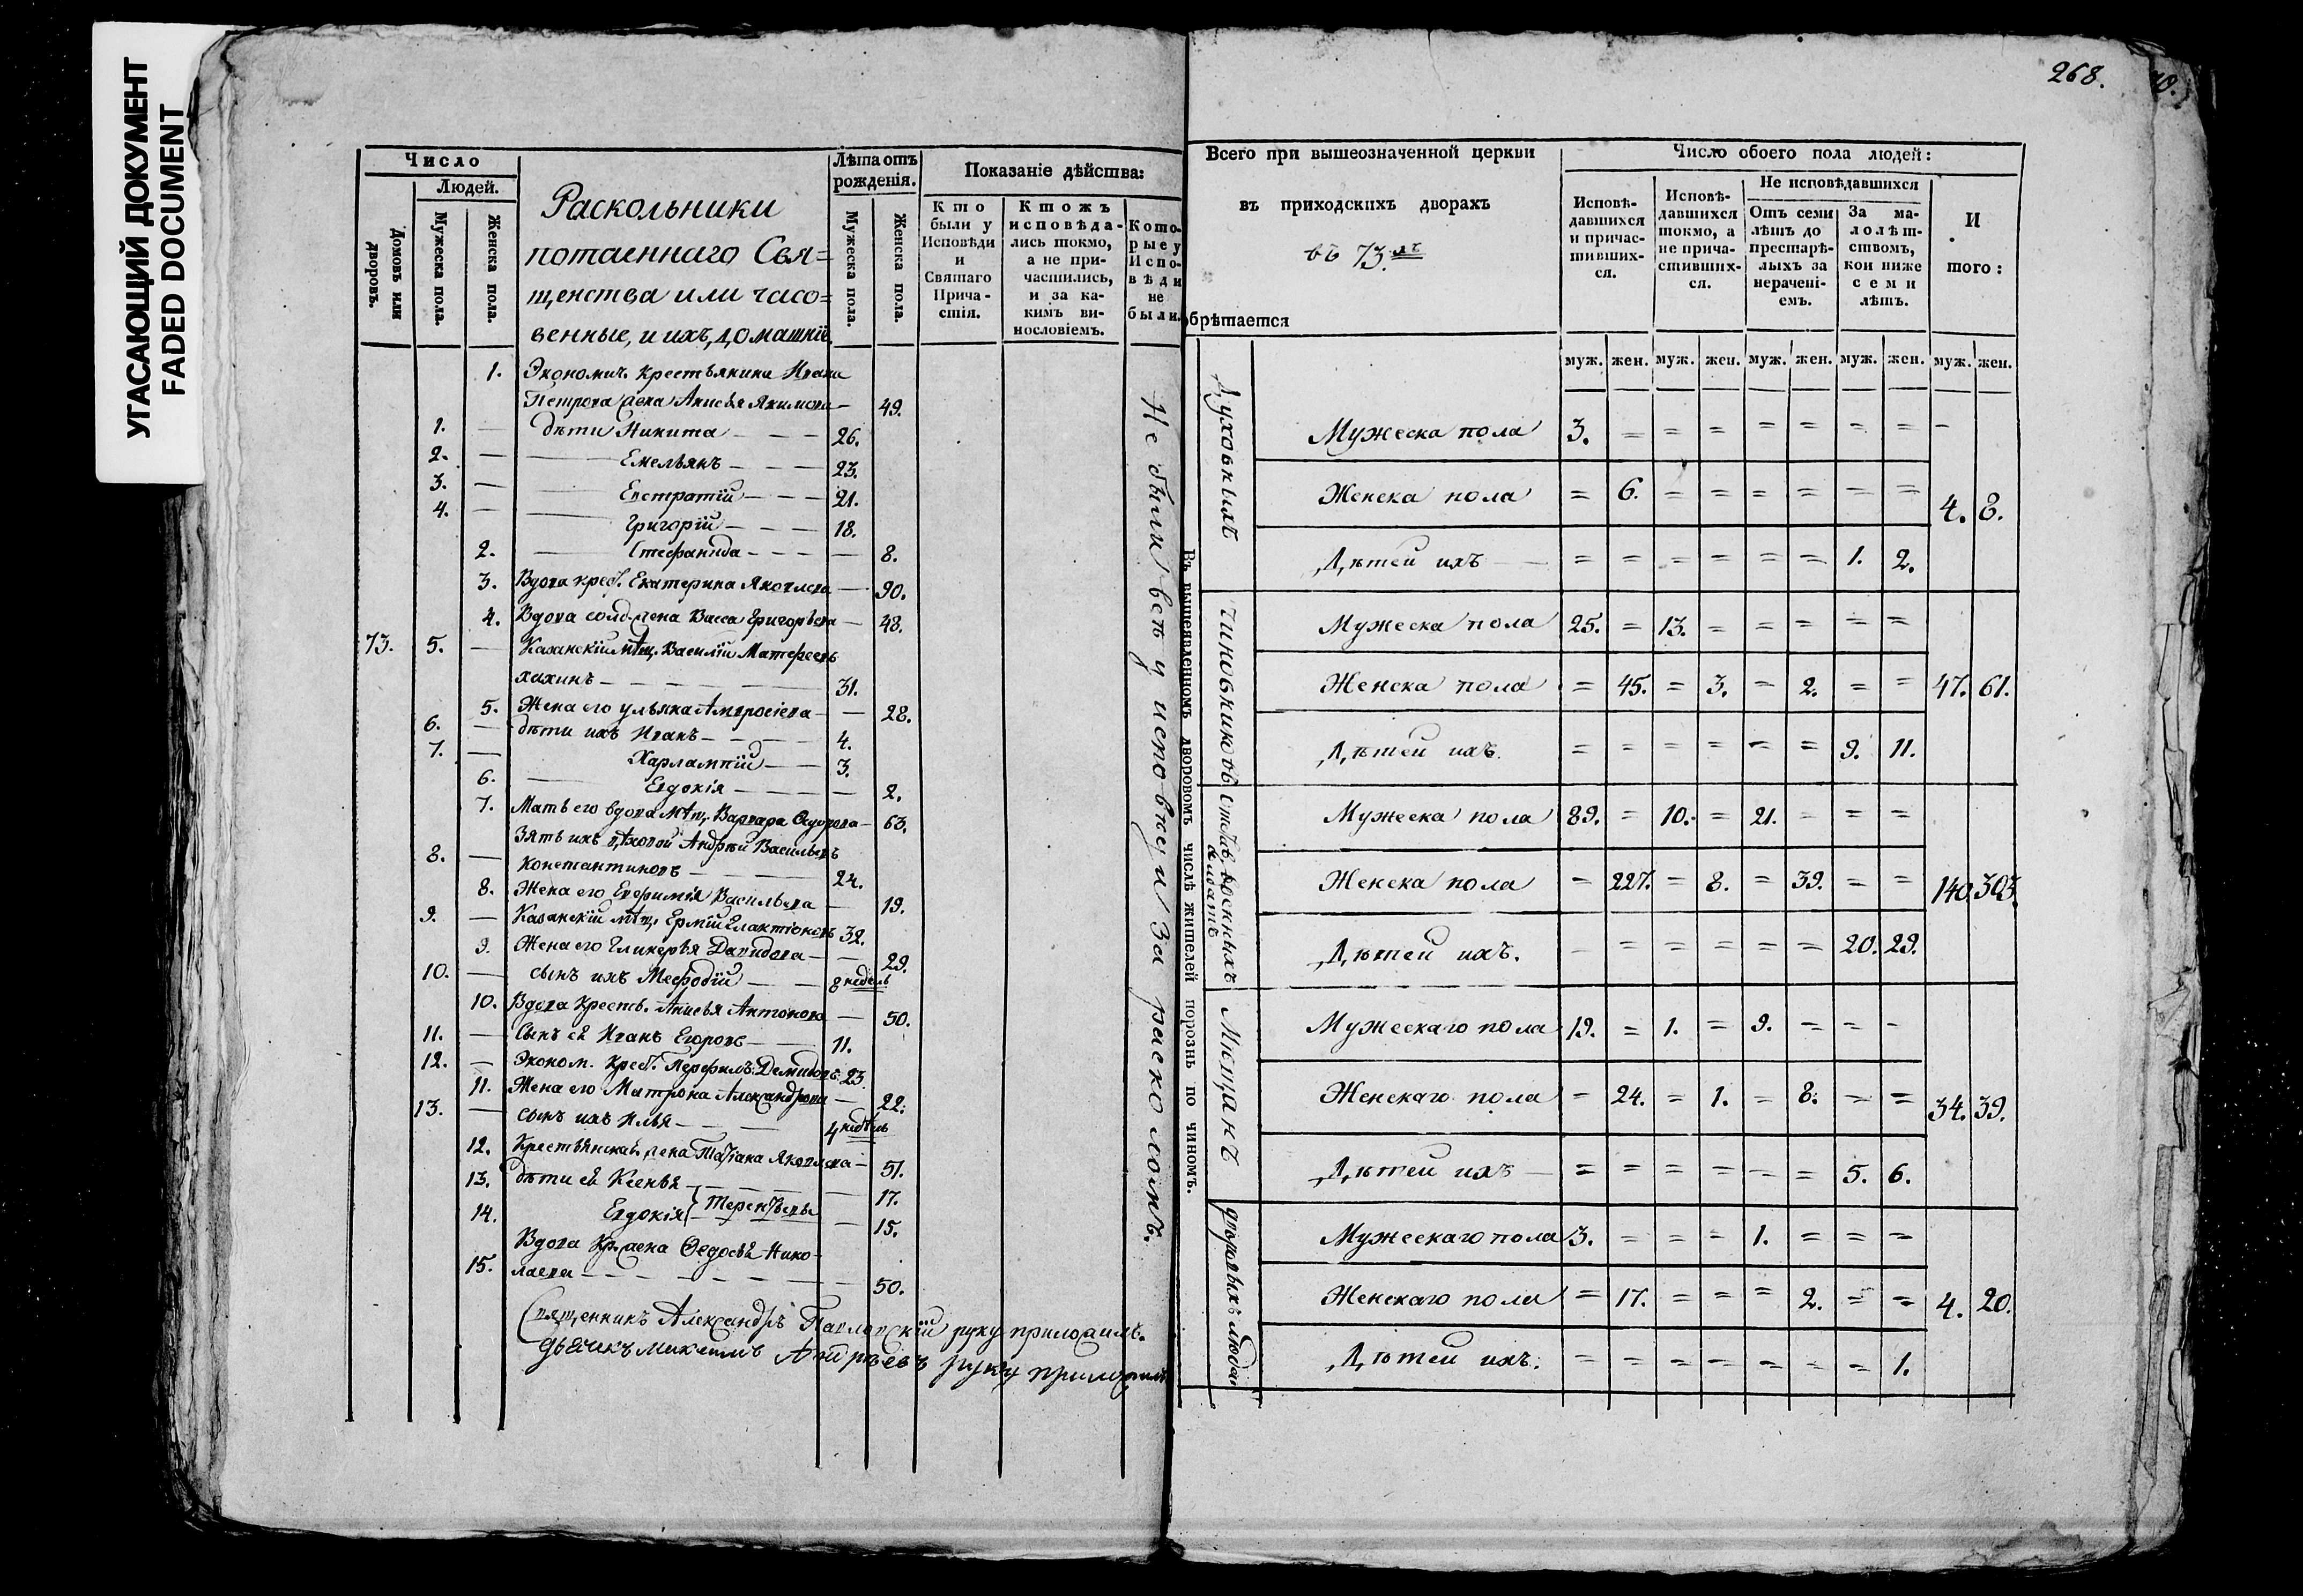 УГАСАЮЩИЙ ДОКУМЕНТ
FADED DOCUMENT
Число
Людей.
Домовъ или дворовъ.
Мужеска пола.
Женска пола.
Раскольники
потаеннаго Свя=
щенства или часо=
венные, и ихъ домашніе
Лѣта отъ рожденія.
Мужеска пола.
Женска пола.
Показаніе дѣйства:
Кто были у Исповѣди и Святаго Причастія.
Ктожъ исповѣдались токмо, а не причастились, и за какимъ винословіемъ.
Которые у Исповѣди не были.
1. Экономич. Крестьянина Ивана
Петрова жена Анисья Якимова — 49.
1. — дѣти Никита — — — 26.
2. — — Емельянъ — — — 23.
3. — — Евстратїй — — — 21.
4. — — Григорїй — — — 18.
2. — Стефанида — — — — 8.
3. Вдова крест. Екатерина Яковлева — 90.
4. Вдова солд. жена Васса Григорьева — 48.
73. 5. — Казанскїй мѣщ. Василїй Матфеевъ
хахинъ — — — — 31.
5. Жена его ульяна Амвросіева — — 28.
6. — дѣти ихъ Иванъ — — — 4.
7. — Харлампїй — — 3.
6. — Евдокія — — — — 2.
7. Мать его вдова мѣщ. Варвара Ѳедорова — 63.
Зять ихъ Андрей Васильевъ
8. — Константиновъ — — — 24.
8. Жена его Евфимія Васильева — 19.
9. — Казанскїй мѣщ. Ермїй Галактіоновъ 32.
9. Жена его Гликерья Давидова — — 29.
10. — сынъ ихъ Меѳодїй — — 8 недѣль
10. Вдова Крестьь. Анисья Антонова — 50.
11. — Сынъ еѣ Иванъ Егоровъ — — 11.
12. — Эконом. Крест. Перфилъ Демидовъ 23.
11. Жена его Матрона Александрова — 22.
13. — сынъ ихъ Илья — — — 4 недѣль
12. Крестьянская жена Татіана Яковлева — 51.
13. дѣти еѣ Ксенья — — — — 17.
14. Евдокія Терентьевы — 15.
Вдова Кр. жена Ѳедосья Нико-
15. лаева — — — — — — 50.
Священникъ Александръ Павловскїй руку приложилъ.
дьячикъ Михаилъ Андреевъ руку приложилъ
Не были веть у исповѣди за расколомъ.
268.
Всего при вышеозначенной церкви
въ приходскихъ дворахъ
въ 73.хъ
обрѣтается
Число обоего пола людей:
Исповѣдавшихся и причастившихся.
Исповѣдавшихся токмо, а не причастившихся.
Не исповѣдавшихся
Отъ семи лѣтъ до престарѣлыхъ за нераченіемъ.
За малолѣтствомъ, кои ниже семи лѣтъ.
И того:
муж. жен. муж. жен. муж. жен. муж. жен. муж. жен.
Въ вышеявленномъ дворовомъ числѣ жителей порознь по чиномъ.
Духовныхъ
Мужеска пола 3. = = = = = = = -
Женска пола = 6. = = = = = = 4. 8.
Дѣтей ихъ = = = = = = 1. 2.
Чиновниковъ
Мужеска пола 25. = 13. = = = = =
Женска пола = 45. = 3. = 2. = = 47. 61.
Дѣтей ихъ. = = = = = = 9. 11.
военныхъ
Мужеска пола 89. = 10. = 21. = = =
Женска пола = 227. = 8. = 39. = = 140. 303.
Дѣтей ихъ. = = = = = = 20. 29.
Мѣщанъ
Мужескаго пола 19. = 1. = 9. = = =
Женскаго пола = 24. = 1. = 8. = = 34. 39.
Дѣтей ихъ = = = = = = 5. 6.
дворовыхъ людей
Мужескаго пола 3. = = = 1. = = =
Женскаго пола = 17. = = = 2. = = 4. 20.
Дѣтей ихъ: = = = = = = = 1.